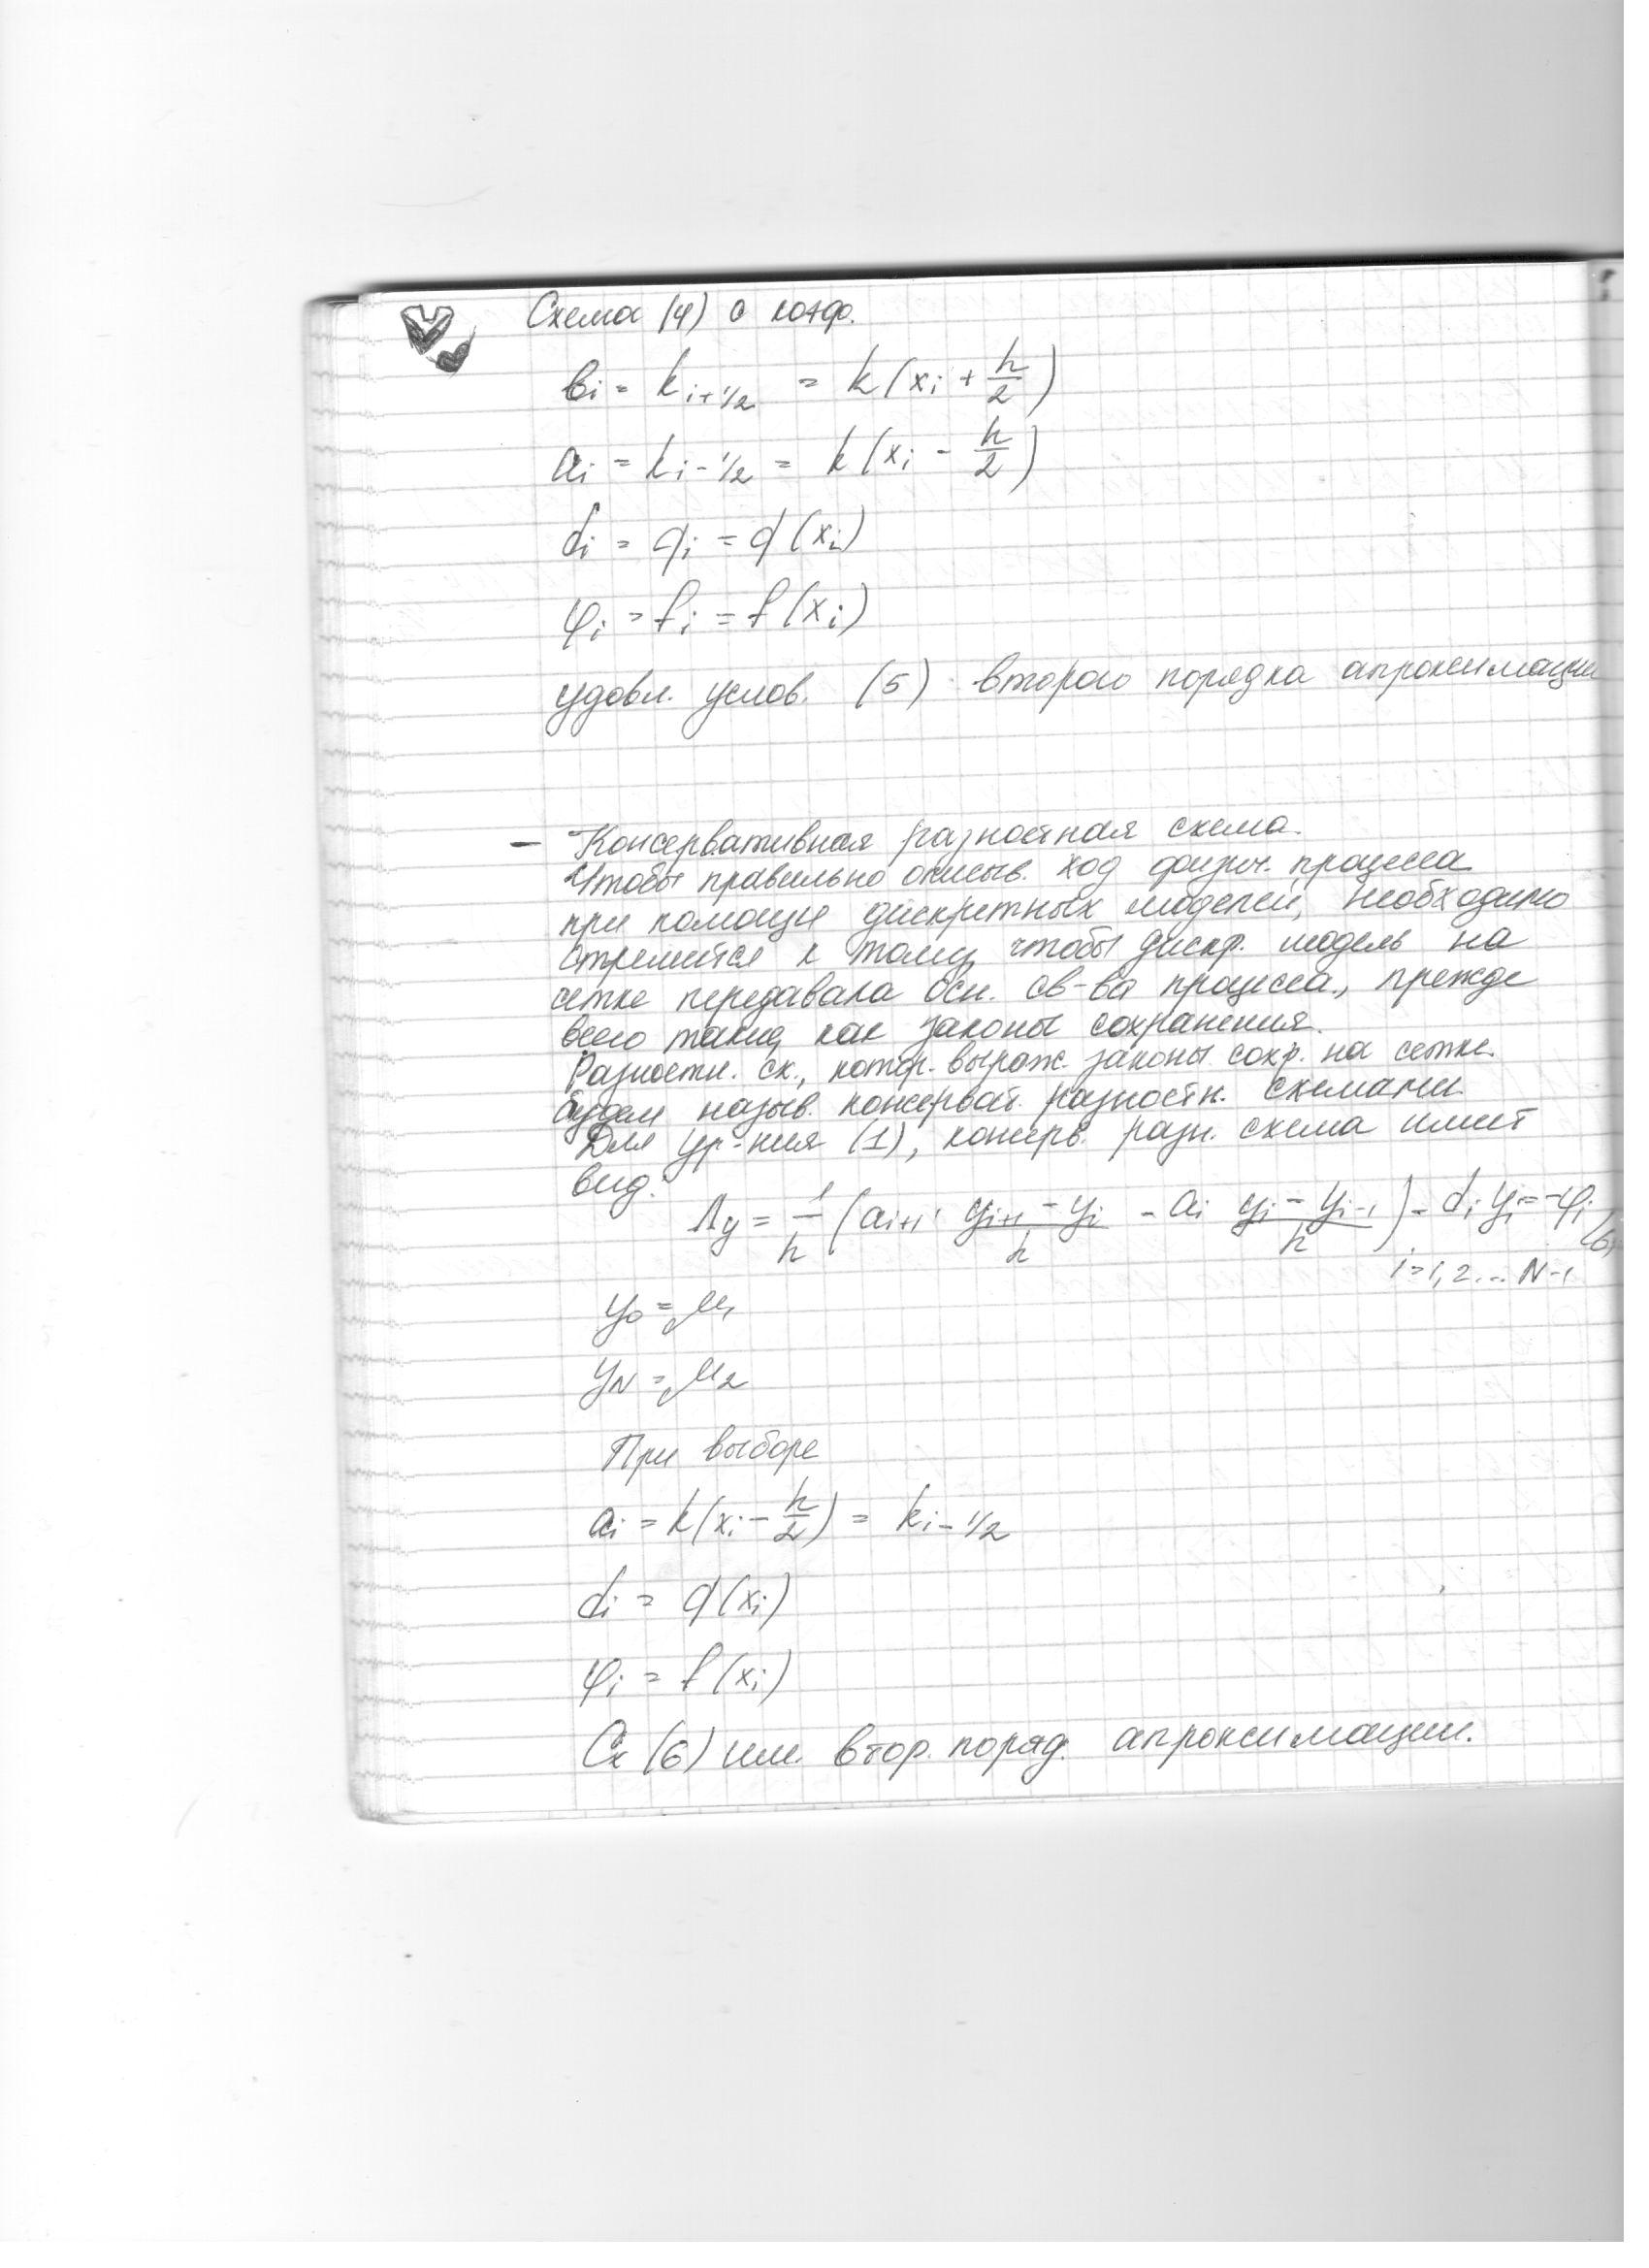 Схема (4) с коэф.
bᵢ = k_{i+1/2} = k(xᵢ + h/2)
aᵢ = k_{i-1/2} = k(xᵢ - h/2)
dᵢ = qᵢ = q(xᵢ)
φᵢ = fᵢ = f(xᵢ)
удовл. услов. (5) второго порядка апроксимации
– Консервативная разностная схема.
Чтобы правильно описыв. ход физич. процесса
при помощи дискретных моделей, необходимо
стремится к тому, чтобы дискр. модель на
сетке передавала осн. св-ва процесса, прежде
всего таких, как законы сохранения.
Разностн. сх., котор. выраж. законы сохр. на сетке.
будем назыв. консерват. разностн. схемами.
Для ур-ния (1), консерв. разн. схема имеет
вид:
Λy = 1/h (a_{i+1} · (y_{i+1} - yᵢ)/h - aᵢ (yᵢ - y_{i-1})/h) - dᵢ yᵢ = -φᵢ (6)
i = 1, 2 ... N-1
y₀ = μ₁
y_N = μ₂
При выборе
aᵢ = k(xᵢ - h/2) = k_{i-1/2}
dᵢ = q(xᵢ)
φᵢ = f(xᵢ)
Сх (6) им. втор. поряд. апроксимации.